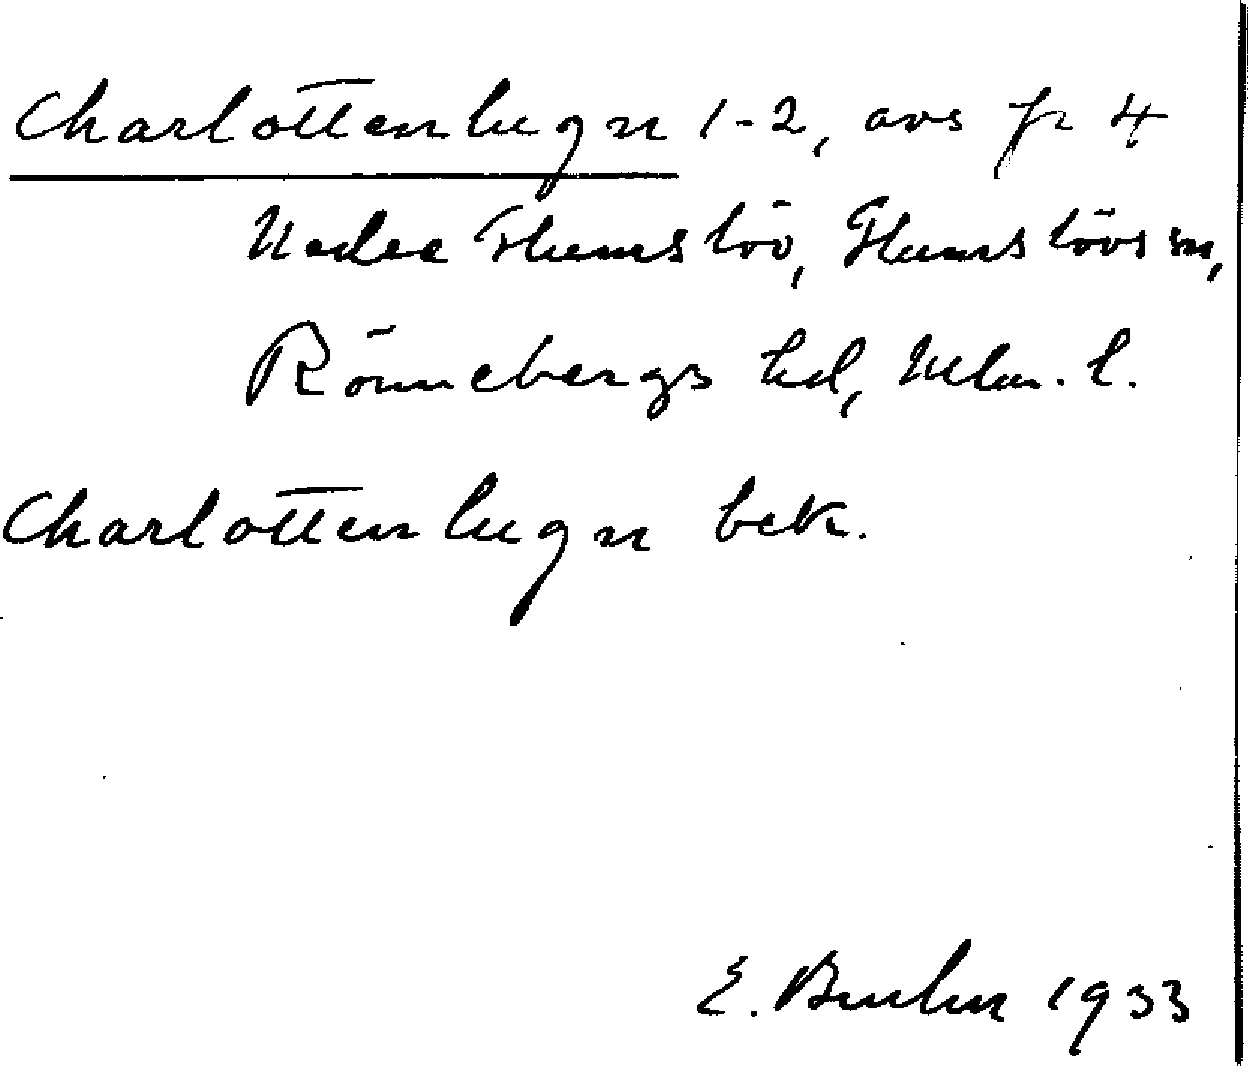 Charlottenlugn 1-2, avs fr 4
Nedre Glumslöv, Glumslövs sn,
Rönnebergs hd, Mlm. l.
Charlottenlugn bek.
E. Bruhn 1933